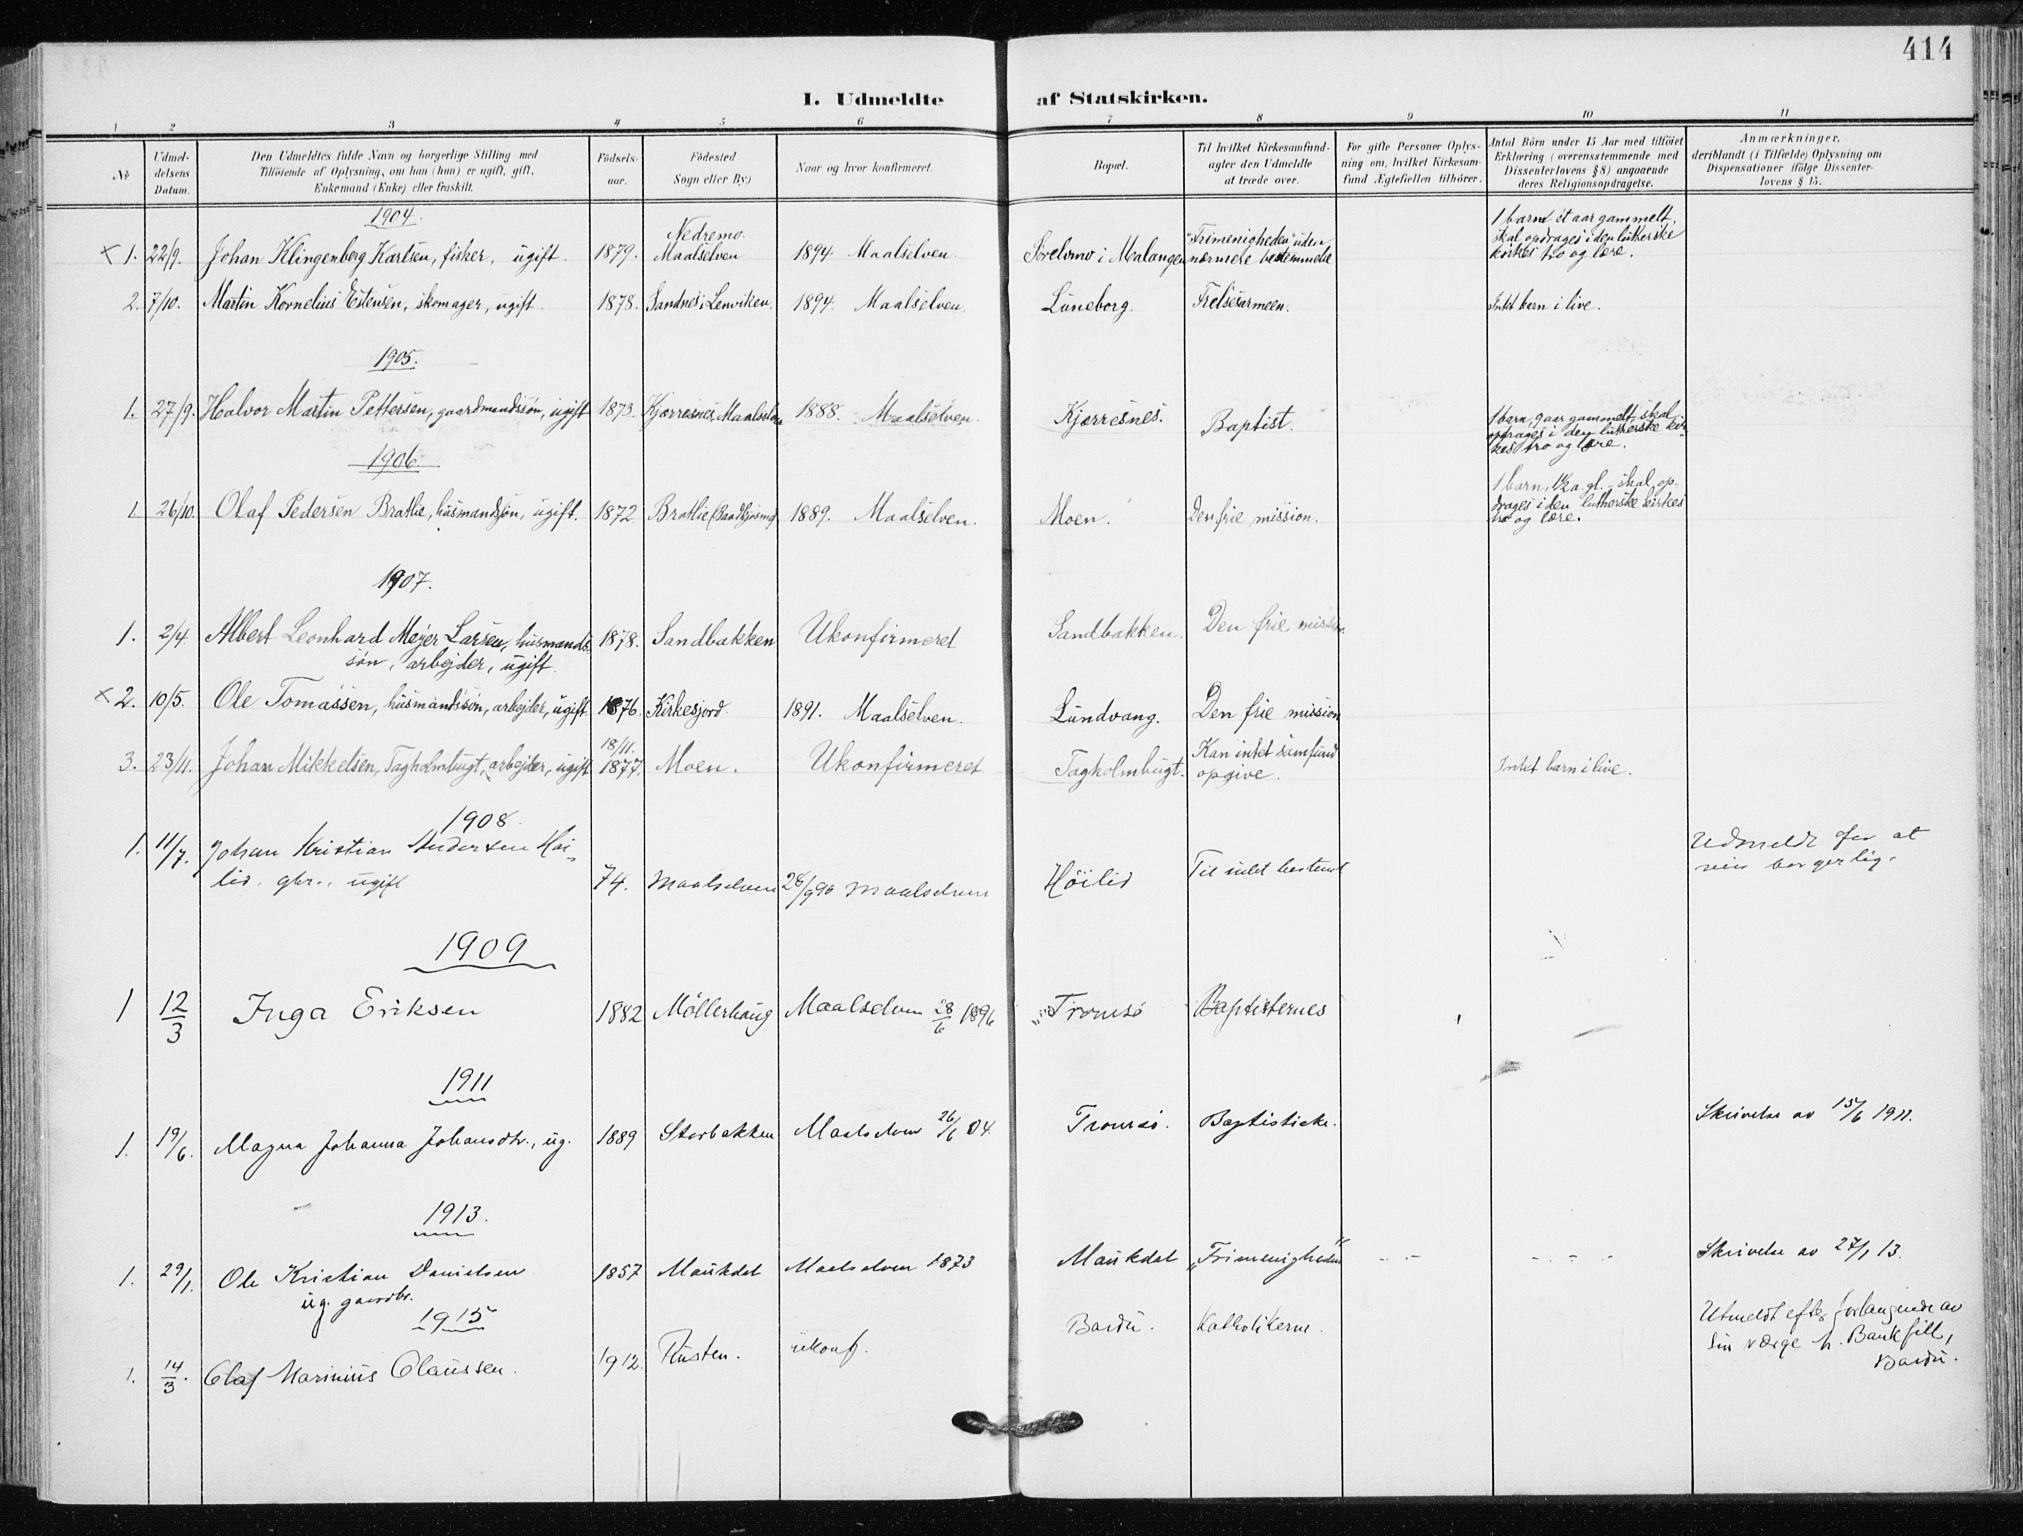 414
I. Udmeldte af Statskirken.
1 2 3 4 5 6 7 8 9 10 11
No
Udmeldelsens Datum.
Den Udmeldtes fulde Navn og borgerlige Stilling med
Tilföiende af Oplysning, om han (hun) er ugift, gift,
Enkemand (Enke) eller fraskilt.
Födselsaar.
Födested
Sogn eller By.)
Naar og hvor konfirmeret.
Bopæl.
Til hvilket Kirkesamfund-
agter den Udmeldte
at træde over.
For gifte Personer Oplys-
ning om, hvilket Kirkesam-
fund Ægtefællen tilhörer.
Antal Börn under 15 Aar med tilföiet
Erklæring (overensstemmende med
Dissenterlovens § 8) angaaende
deres Religionsopdragelse.
Anmærkninger,
deriblandt (i Tilfælde) Oplysning om
Dispensationer ifölge Dissenter-
lovens § 15.
1904.
× 1. 22/9. Johan Klingenberg Karlsen, fisker, ugift. 1879. Nedremo Maalselven 1894. Maalselven. Sørelvmo i Malangen "Frimenigheden" uden nærmere bestemmelse 1 barn et aar gammelt, skal opdrages i den lutherske kirkes tro og lære.
2. 7/10. Martin Kornelius Estensen, skomager, ugift. 1878. Sandnes i Lenviken. 1894. Maalselven. Luneborg. Frelsesarmeen. Intet barn i live.
1905.
1. 27/9. Halvor Martin Pettersen, gaardmandssøn, ugift 1873. Kjærresnes, Maalselven 1888. Maalselven. Kjærresnes. Baptist. 1 barn, 9 aar gammelt, skal opdrages i den lutherske kirkes tro og lære.
1906.
1 26/10. Olaf Pedersen Bratlie, husmandssøn, ugift. 1872. Bratlie 1889. Maalselven. Moen. Den frie mission. 1 barn, 1/2 a. gl. - skal opdrages i den lutherske kirkes tro og lære.
1907.
1. 2/4. Albert Leonhard Mejer Larsen, husmandssøn, arbejder, ugift. 1878. Sandbakken Ukonfirmeret Sandbakken. Den frie mission.
× 2. 10/5. Ole Tomassen, husmandssøn, arbejder, ugift 1876. Kirkesjord. 1891. Maalselven. Lundvang. Den frie mission
3. 23/11. Johan Mikkelsen, Tagholmbugt, arbejder, ugift 18/11. 1877. Moen. Ukonfirmeret Tagholmbugt. Kan intet samfund opgive. Intet barn i live.
1908.
1. 11/7. Johan Kristian Andersen Høilid. gbr., ugift 74. Maalselven 28/9 90 Maalselven Høilid Til intet bestemt Udmeldt for at vies borgerlig.
1909
1 12/3 Inga Eriksen 1882 Møllerhaug Maalselven 28/6 1896 Tromsø Baptisternes
1911
1. 19/6. Magna Johanna Johansdtr., ug. 1889 Storbakken Maalselven 26/6 04. Tromsø. Baptistiske. Skrivelse av 15/6 1911.
1913.
1. 29/1. Ole Kristian Danielsen ug. gaardbr. 1857 Maukdal Maalselven 1873 Maukdal "Frimenigheden" - - - - - Skrivelse av 27/1 13.
1915
1. 14/3. Olaf Marinius Olaussen. 1912. Kusten. ukonf. Bardu. Katholikerne. Utmeldt efter forlangende av sin værge h. Bardu.